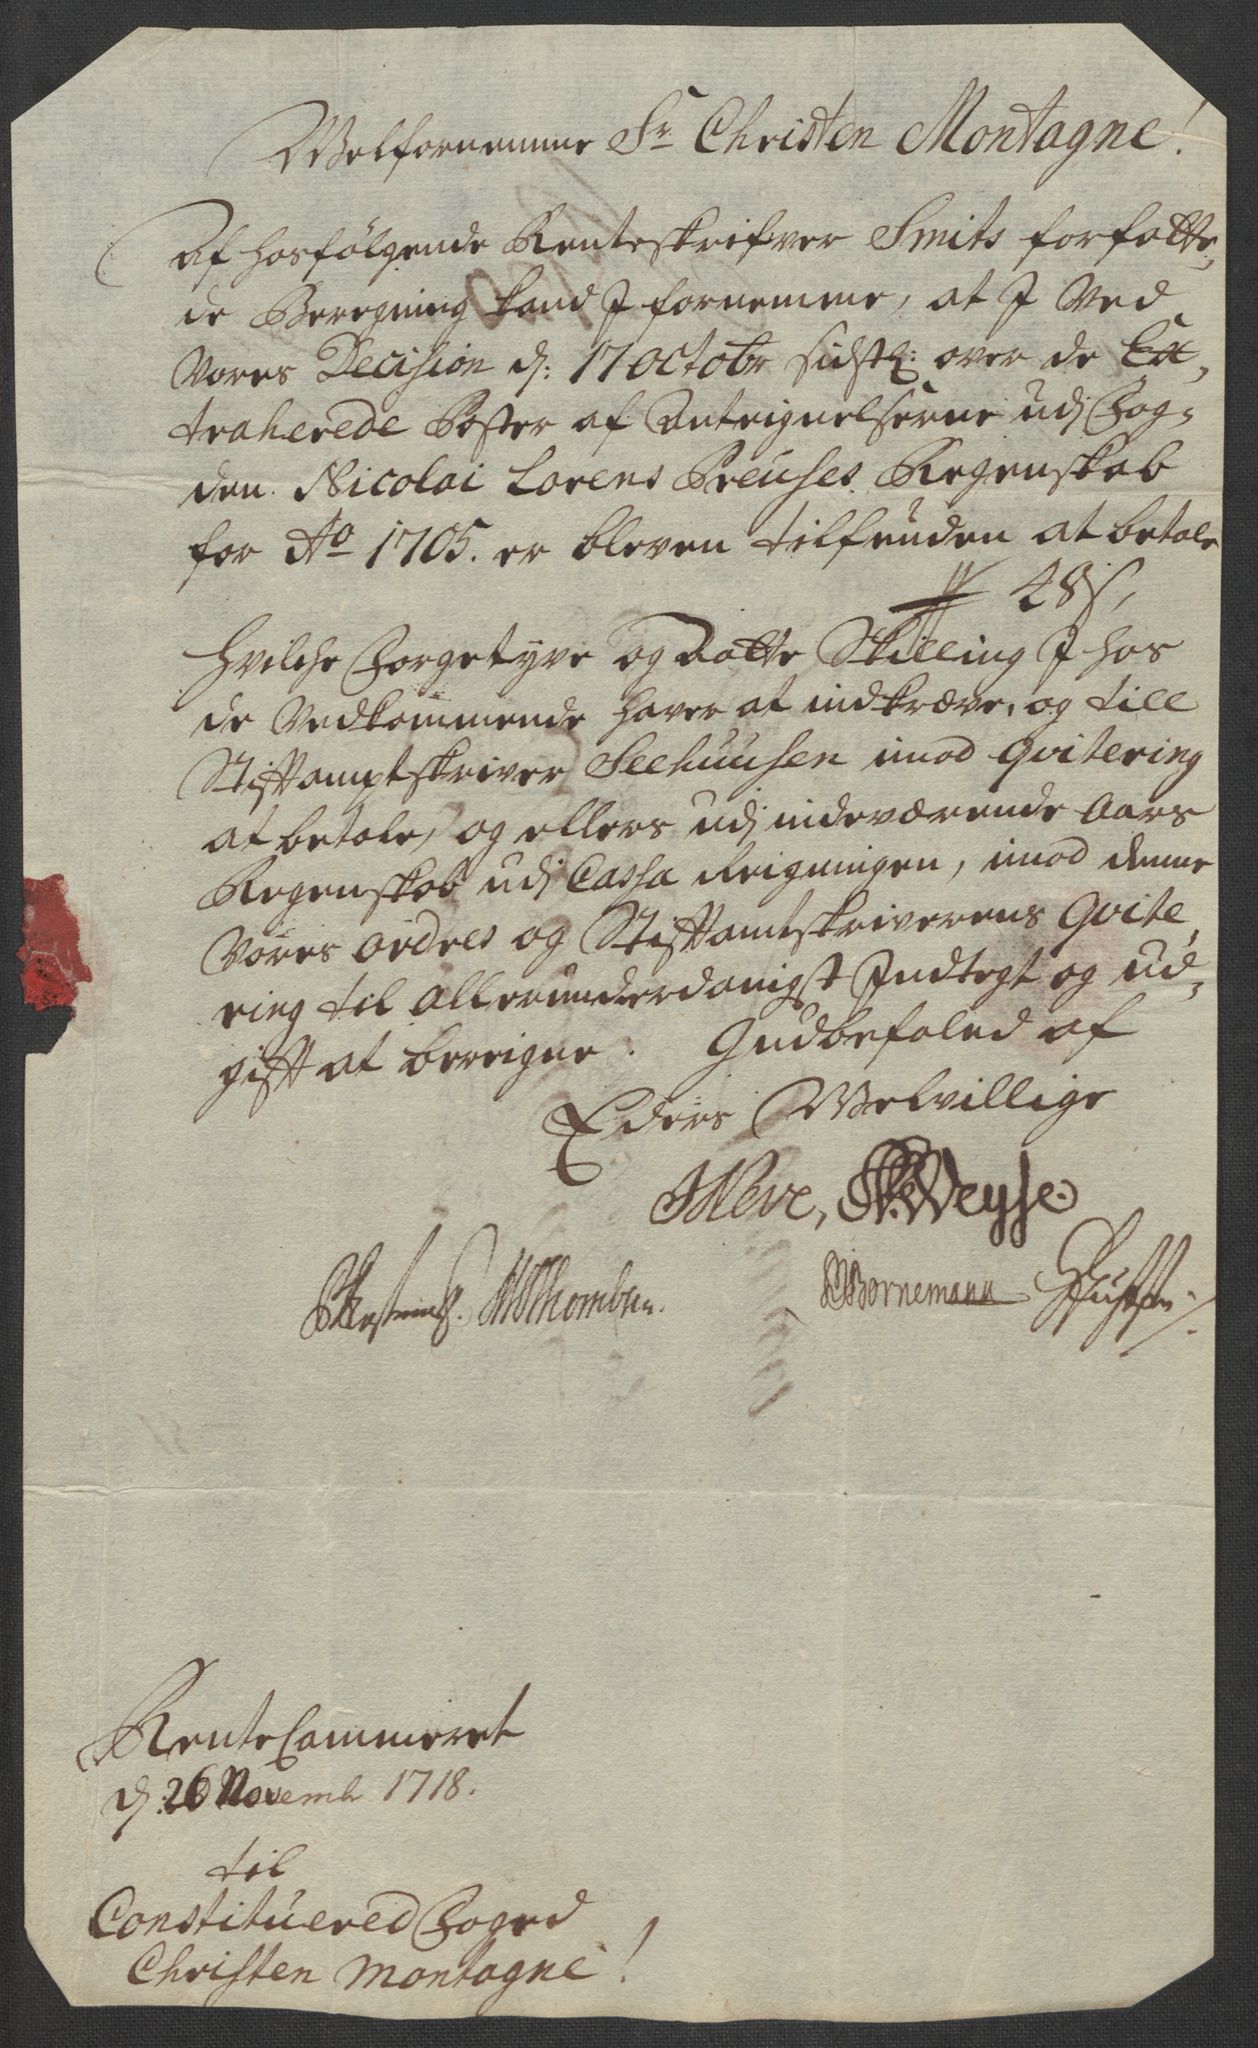 Welfornemme Sr Christen Montagne!
Af hosfölgende Renteskrifver Smits forfatte,
de Beregning kand I fornemme, at I Ved
Vores Decision d: 17 Octobr sidstl: over de Ex,
traherede Poster af Antegnelserne udj Fog=
den Nicolai Lorens Preuses Regenskab
for Ao 1705. er bleven tilfunden at betale
48 s,
Hvilche Förgetyve og Aatte Skilling I hos
de Vedkommende haver at indkræve, og till
Stiftamptskriver Seehuusen imod Qvitering
at betale, og ellers udj indeværende Aars
Regenskab udj Cassa Reigningen, imod denne
Vores ordres og Stiftamtskriverens Qvite,
ring til allerunderdanigst Indtegt og ud,
gift at bereigne. Gudbefaled af
Eders Welvillige
JWeve, Weyse.
Thombsen. Bornemann
Rente Cammeret
d: 26 Novemb 1718.
til
Constituered Foged
Christen Montagne!